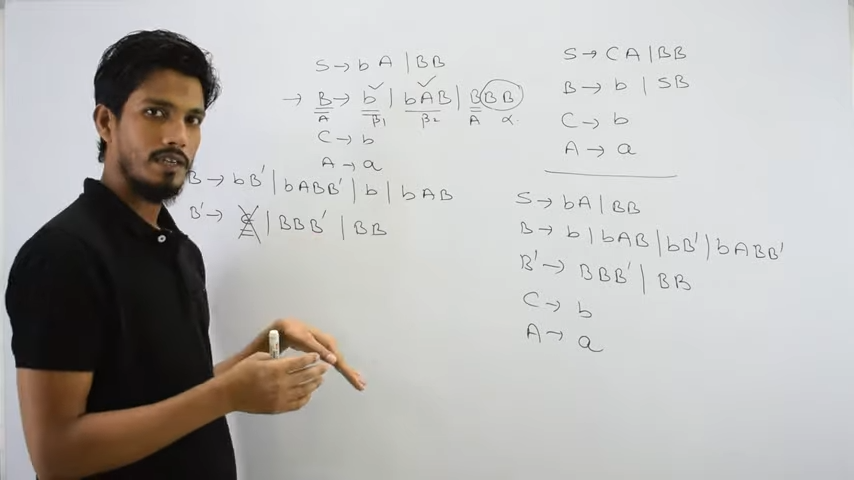 S → b A | BB
→ B → b | bAB | BBB
A β₁ β₂ A α
C → b
A → a
B → bB' | bABB' | b | bAB
B' → ϵ | BBB' | BB
S → CA | BB
B → b | SB
C → b
A → a
S → bA | BB
B → b | bAB | bB' | bABB'
B' → BBB' | BB
C → b
A → a